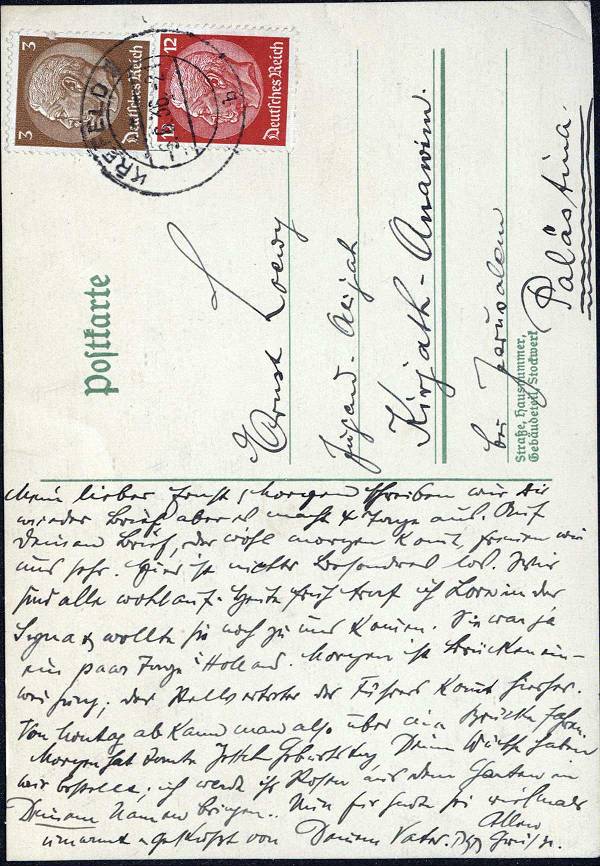 3
3
Deutsches Reich
12
12
Deutsches Reich
KREFELD
b
Postkarte
Ernst Loewy
Jugend-Alijah
Kirjath-Anawim.
bei Jerusalem
Palästina.
Straße, Hausnummer,
Gebäudeteil, Stockwerk
Mein lieber Ernst, Morgen schreiben wir Dir
wieder Brief aber es macht Tage aus. Auf
Deinen Brief, der wohl morgen kommt, freuen wir
uns sehr. Hier ist nichts Besonderes los. Wir
sind alle wohlauf. Heute früh traf ich in der
wollte sie noch zu uns kommen. Sie war ja
ein paar Tage i Holland. Morgen ist Brückenein-
weihung; der Stellvertreter des Führers kommt hierher.
Von Montag ab kann man also über die Brücke fahren.
Morgen hat Tante Geburtstag, Deine Wünsche haben
wir bestellt; ich werde ihr Rosen aus dem Garten in
Deinem Namen bringen. Nun für heute sei vielmals
umarmt geküsst von Deinem Vater.